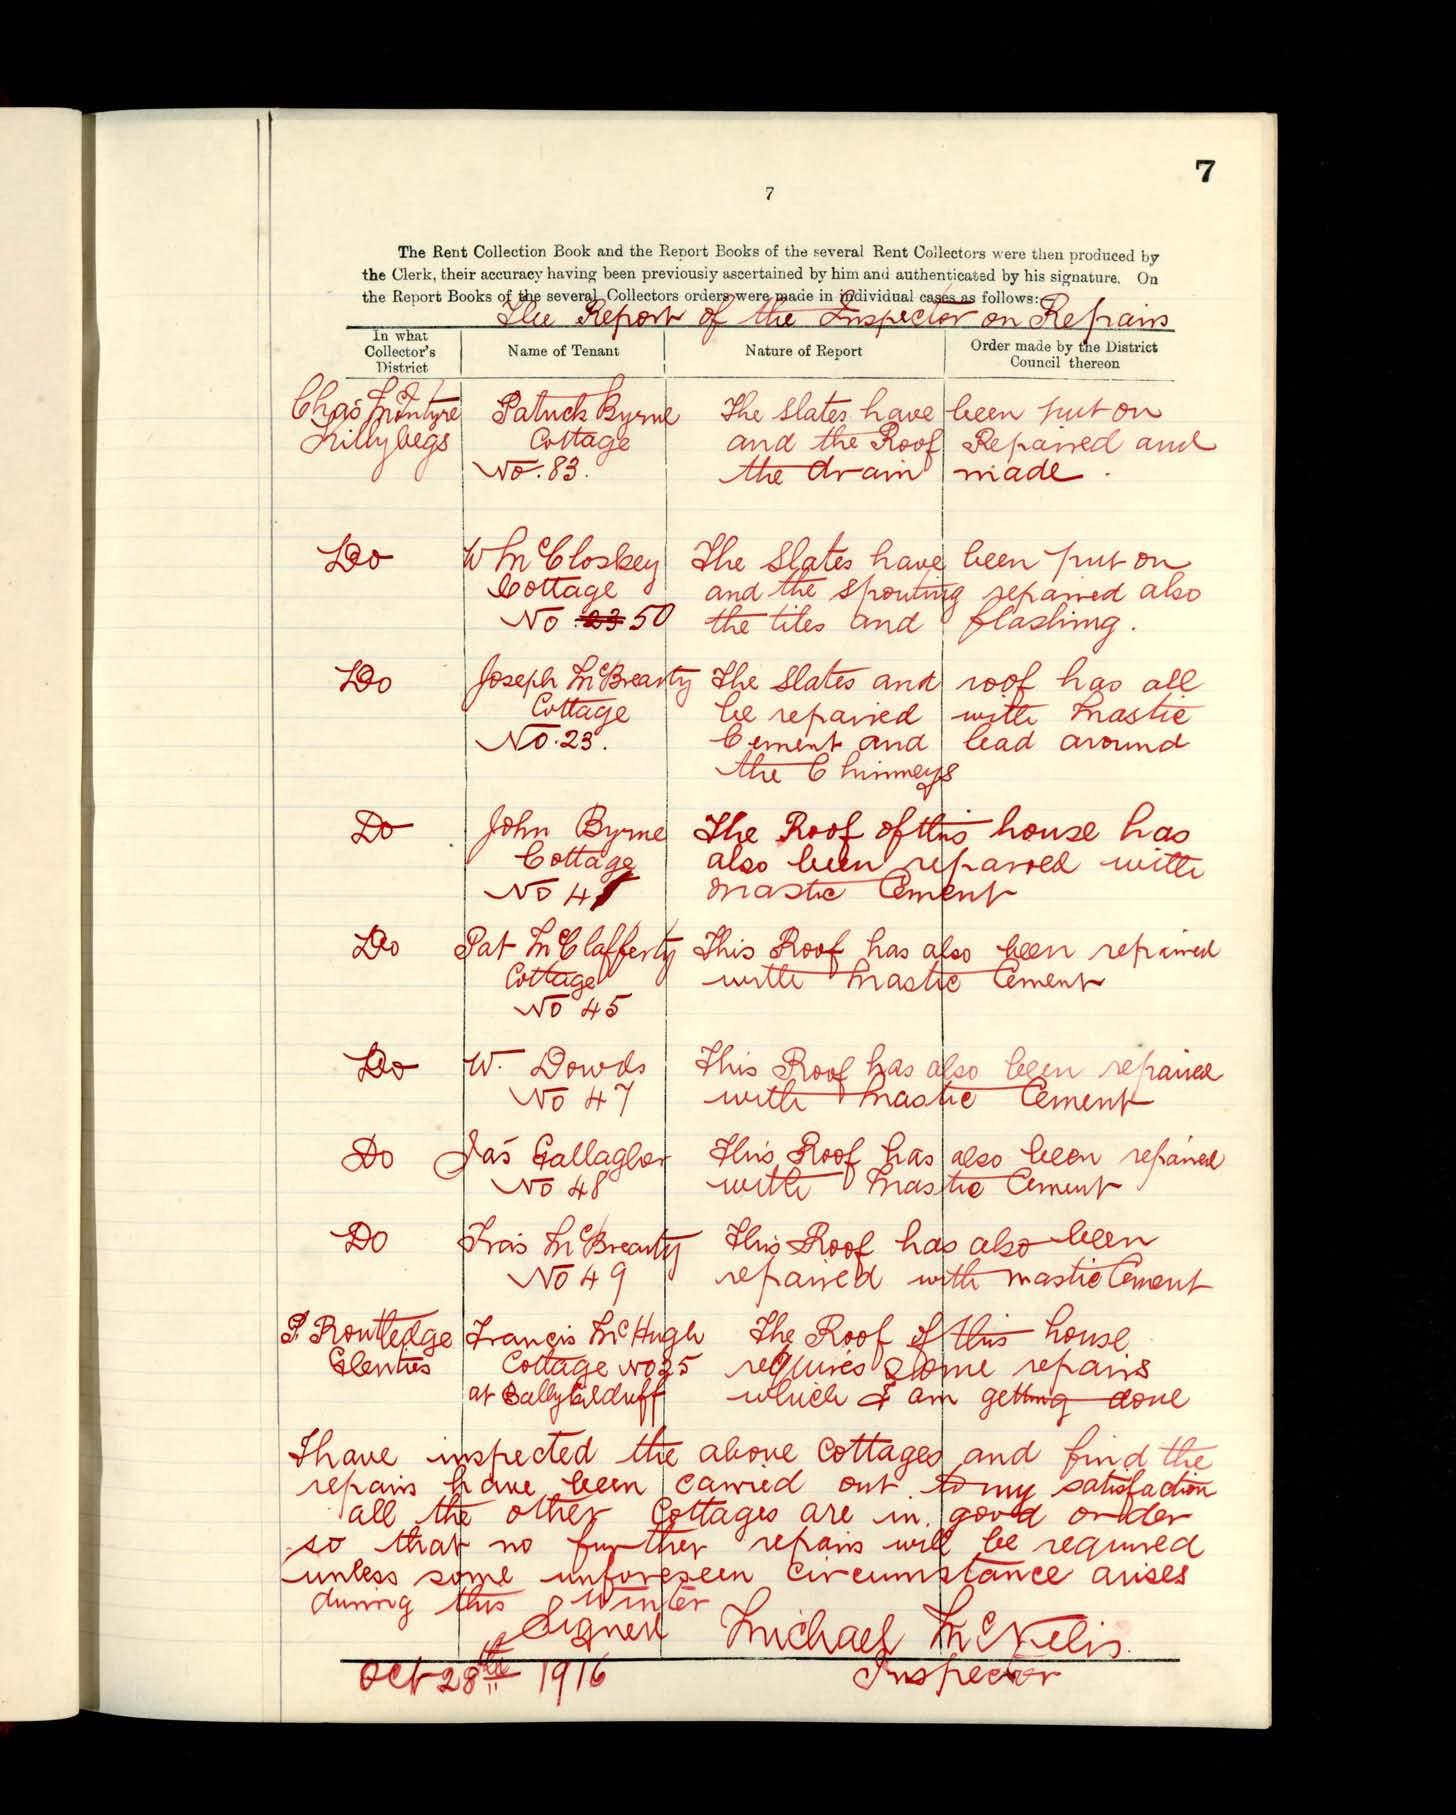 7
7
The Rent Collection Book and the Report Books of the several Rent Collectors were then produced by
the Clerk, their accuracy having been previously ascertained by him and authenticated by his signature. On
the Report Books of the several Collectors orders were made in individual cases as follows:—
The Report of the Inspector on Repairs
In what Collector's District | Name of Tenant | Nature of Report | Order made by the District Council thereon
Chas McIntyre Patrick Byrne The Slates have been put on
Killybegs Cottage and the Roof Repaired and
No. 83. the drain made.
Do W McCloskey The Slates have been put on
Cottage and the spouting repaired also
No 23 50 the tiles and flashing.
Do Joseph McBrearty The Slates and roof has all
Cottage be repaired with Mastic
No. 23. Cement and lead around
the Chimneys
Do John Byrne The Roof of this house has
Cottage also been repaired with
No 4 mastic Cement
Do Pat McClafferty This Roof has also been repaired
Cottage with Mastic Cement
No 45
Do W. Dowds This Roof has also been repaired
No 47 with Mastic Cement
Do Jas Gallagher This Roof has also been repaired
No 48 with Mastic Cement
Do Fras McBrearty This Roof has also been
No 49 repaired with mastic Cement
P. Routledge Francis McHugh The Roof of this house
Glenties Cottage No 25 requires some repairs
at Ballykilduff which I am getting done
I have inspected the above Cottages and find the
repairs have been carried out to my satisfaction
all the other Cottages are in good order
so that no further repairs will be required
unless some unforeseen circumstance arises
during this Winter
Signed Michael McNelis.
Oct 28th 1916 Inspector